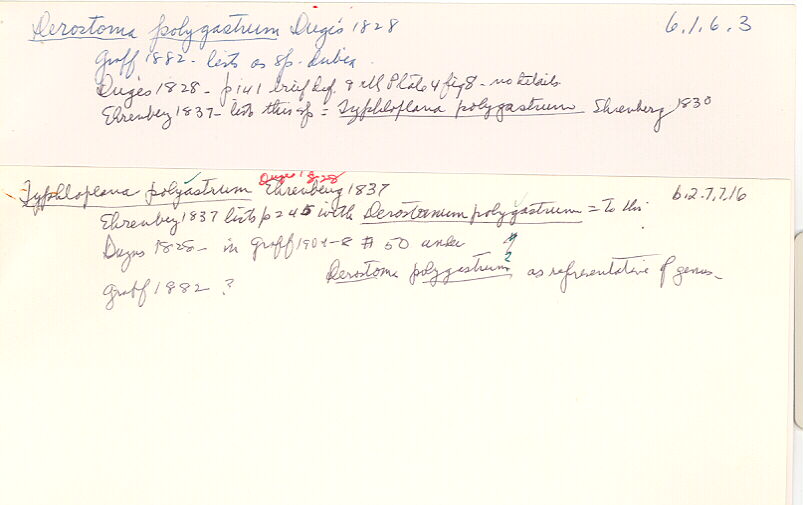 Derostoma polygastrum Dugès 1828 6.1.6.3
Graff 1882 - lists as sp. dubia
Dugès 1828 - p 141 brief def. & ill Plate 4 fig 8 - no details
Ehrenberg 1837 - lists this sp = Typhloplana polygastrum Ehrenberg 1830
Duges 1828
Typhloplana polygastrum Ehrenberg 1837 6.2.7.7.16
Ehrenberg 1837 lists p 245 with Derostomum polygastrum = to this
Duges 1828 - in Graff 1904-8 # 50 under
Graff 1882 ? Derostoma polygastrum as representative of genus -